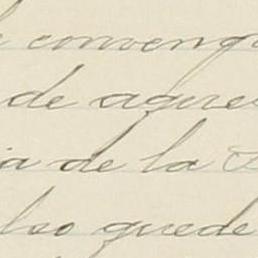 convenga
de aque
ia de la
lso quede